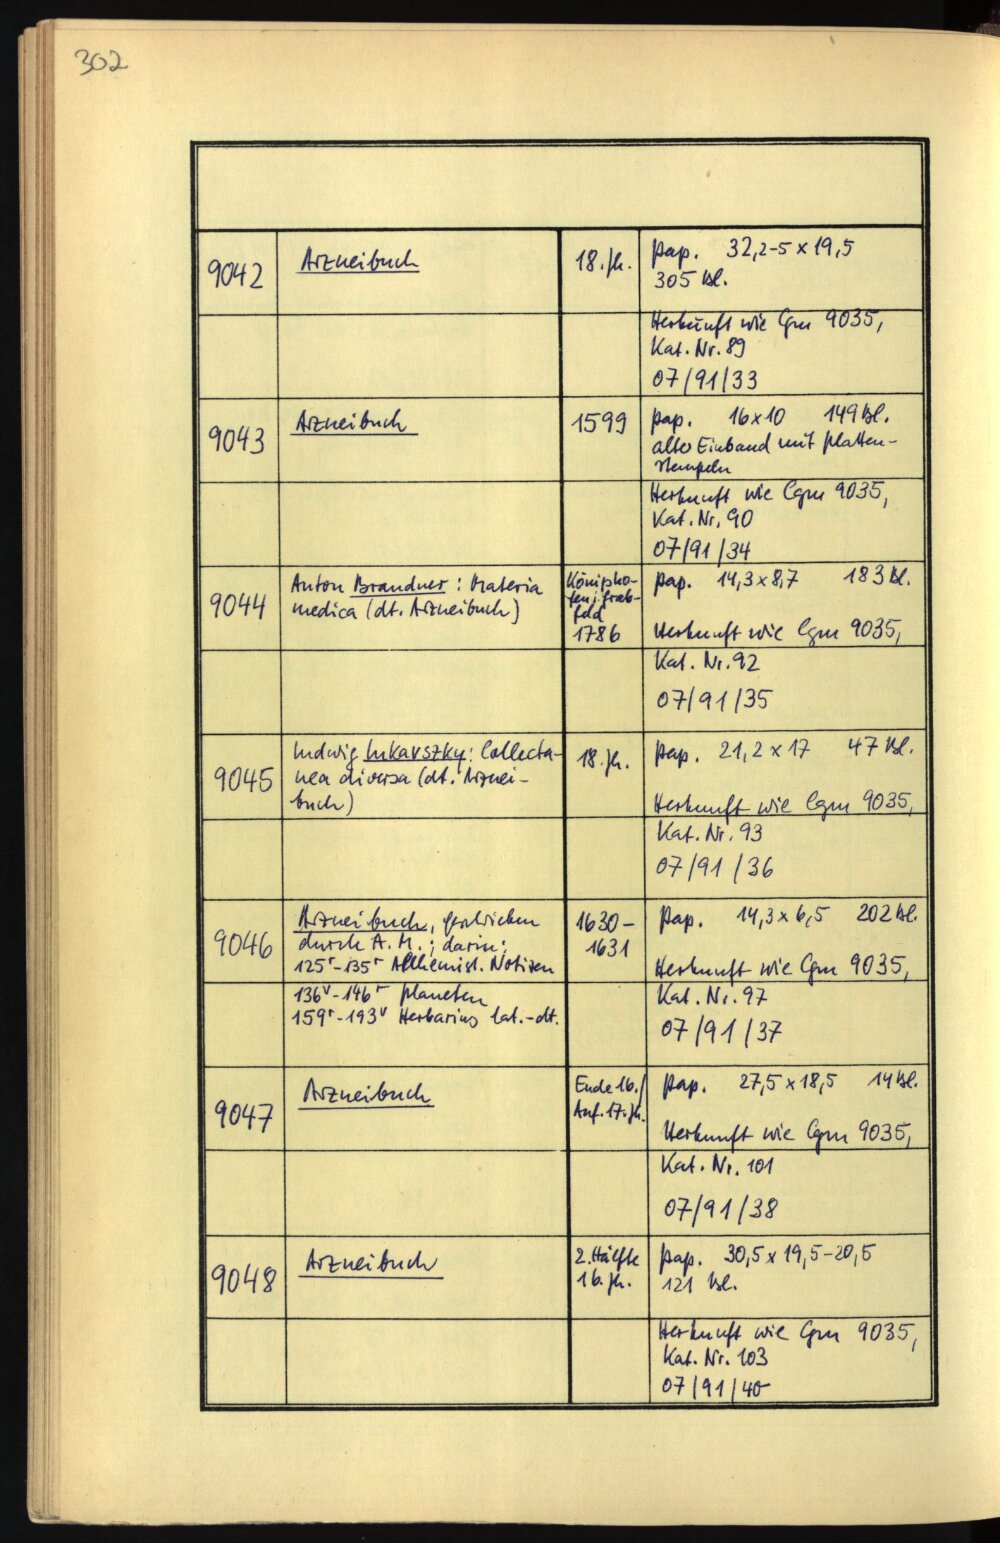 302
9042
Arzneibuch
18. Jh.
Pap. 32,2-5 x 19,5
305 Bl.
Herkunft wie Cgm 9035,
Kat. Nr. 89
07/91/33
9043
Arzneibuch
1599
Pap. 16x10 149 Bl.
alter Einband mit Platten-
stempeln
Herkunft wie Cgm 9035,
Kat. Nr. 90
07/91/34
9044
Anton Brandner: Materia
medica (dt. Arzneibuch)
Königsho-
fen i. Grab-
feld
1786
Pap. 14,3 x 8,7 183 Bl.
Herkunft wie Cgm 9035,
Kat. Nr. 92
07/91/35
9045
Ludwig Lukavszky: Collecta-
nea diversa (dt. Arznei-
buch)
18. Jh.
Pap. 21,2 x 17 47 Bl.
Herkunft wie Cgm 9035,
Kat. Nr. 93
07/91/36
9046
Arzneibuch, geschrieben
durch A. M.; darin:
125r-135r Alchemist. Notizen
136v-146r Planeten
159r-193v Herbarius lat.-dt.
1630-
1631
Pap. 14,3 x 6,5 202 Bl.
Herkunft wie Cgm 9035,
Kat. Nr. 97
07/91/37
9047
Arzneibuch
Ende 16./
Anf. 17. Jh.
Pap. 27,5 x 18,5 14 Bl.
Herkunft wie Cgm 9035,
Kat. Nr. 101
07/91/38
9048
Arzneibuch
2. Hälfte
16. Jh.
Pap. 30,5 x 19,5-20,5
121 Bl.
Herkunft wie Cgm 9035,
Kat. Nr. 103
07/91/40